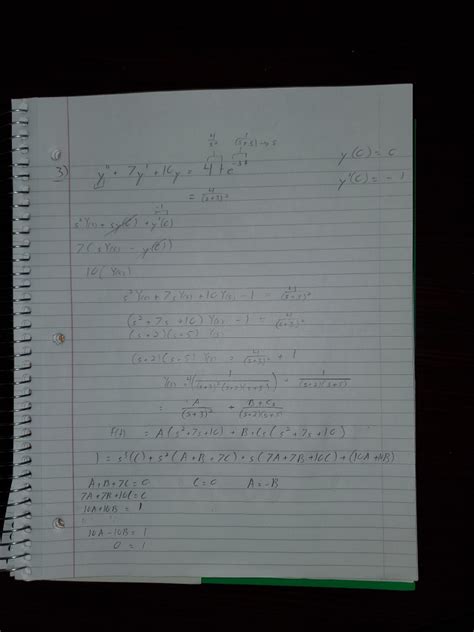 4/s² 1/(s+3) → s
3) y'' + 7y' + 10y = 4te^-3t y(0) = 0
y'(0) = -1
= 4/(s+3)²
-1
s²Y(s) + sy(0) + y'(0)
7(sY(s) - y(0))
10(Y(s)
s²Y(s) + 7sY(s) + 10Y(s) - 1 = 4/(s+3)²
(s² + 7s + 10)Y(s) - 1 = 4/(s+3)²
(s+2)(s+5) Y(s)
(s+2)(s+5) Y(s) = 4/(s+3)² + 1
Y(s) = 4(1/((s+3)²(s+2)(s+5)) - 1/((s+2)(s+5))
= A/(s+3)² + B+Cs/((s+2)(s+5))
= A(s²+7s+10) + B+Cs(s²+7s+10)
1 = s³(C) + s²(A+B+7C) + s(7A+7B+10C) + (10A+10B)
A+B+7C=0 C=0 A=-B
7A+7B+10C=0
10A+10B = 1
=
10A-10B = 1
0 = 1